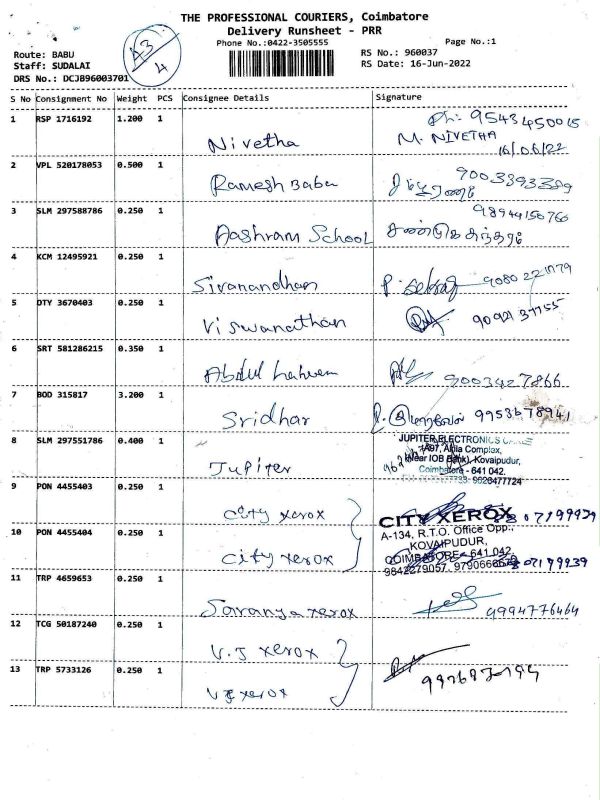 THE PROFESSIONAL COURIERS, Coimbatore
Delivery Runsheet - PRR
Phone No.:0422-3505555 Page No.:1
Route: BABU RS No.: 960037
Staff: SUDALAI RS Date: 16-Jun-2022
DRS No.: DCJB96003701
S No Consignment No Weight PCS Consignee Details Signature
Ph: 9543450015
1 RSP 1716192 1.200 1 Nivetha M. NIVETHA
16/06/22
2 VPL 520178053 0.500 1 Ramesh Babu 9003393389
3 SLM 297588786 0.250 1 Aashram School 9894456766
4 KCM 12495921 0.250 1 Sivanandhan
5 DTY 3670403 0.250 1 Viswanathan
6 SRT 581286215 0.350 1 Abdul 9003427866
7 BOD 315817 3.200 1 Sridhar
8 SLM 297551786 0.400 1 Jupiter
JUPITER ELECTRONICS
Complex,
(Near IOB Bank), Kovaipudur,
Coimbatore - 641 042.
9 PON 4455403 0.250 1 City xerox
CITY XEROX
A-134, R.T.O. Office Opp.,
KOVAIPUDUR,
COIMBATORE - 641 042.
10 PON 4455404 0.250 1 City xerox
9842279057,
11 TRP 4659653 0.250 1 Saranya xerox 9994776464
12 TCG 50187240 0.250 1 V.J xerox
13 TRP 5733126 0.250 1 VJ xerox